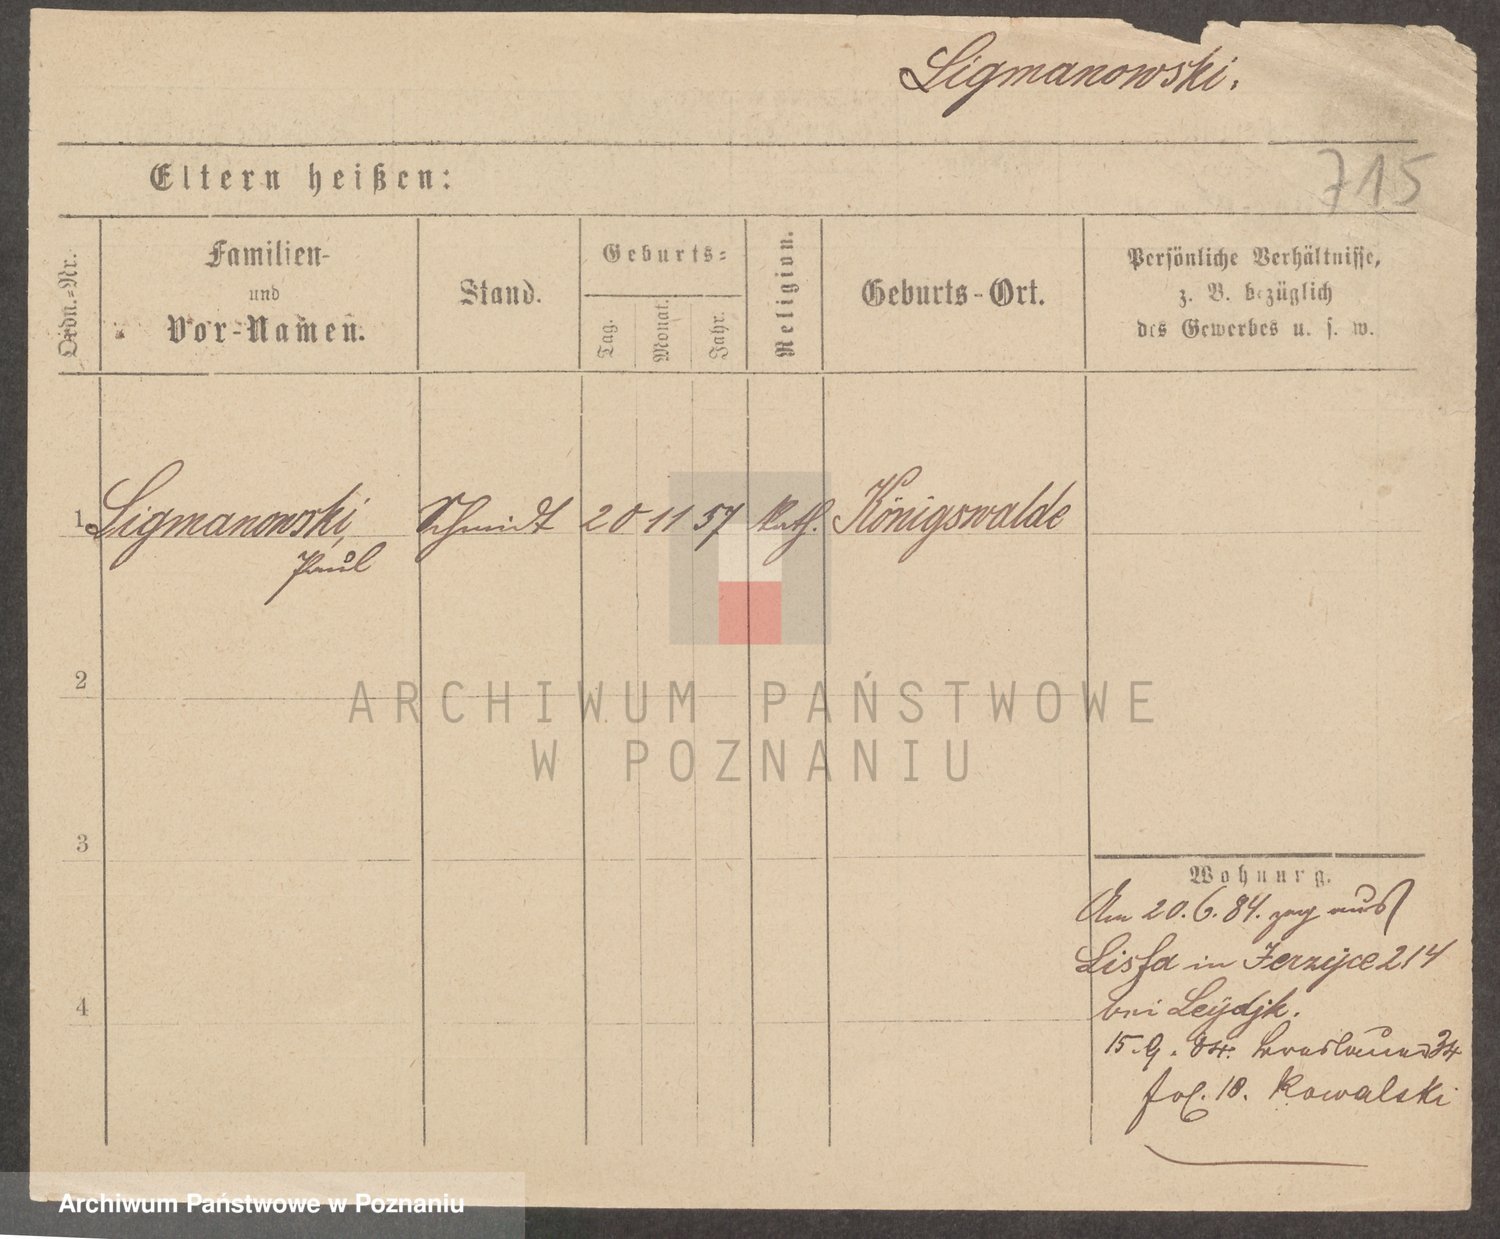 Ligmanowski.
715
Eltern heißen:
Ordn.-Nr.
Familien-
und
Vor-Namen.
Stand.
Geburts-
Tag.
Monat.
Jahr.
Religion.
Geburts-Ort.
Persönliche Verhältnisse,
z. B. bezüglich
des Gewerbes u. s. w.
1 Ligmanowski, Schmidt 20 11 57 Kath. Königswalde
Paul
2
ARCHIWUM PAŃSTWOWE
W POZNANIU
3
4
Wohnung.
Am 20.6.84. zog aus
Lissa in Jerzyce 214
bei
15.9.84. 34
fol. 18. Kowalski
Archiwum Państwowe w Poznaniu